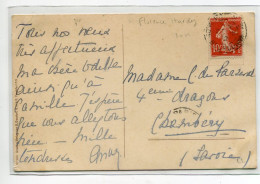 Tous nos vœux
très affectueux
ma chère Odette
ainsi qu'à
Camille J'espère
que vous allez tous
bien — Mille
tendresses
Madame C. de
4eme dragons
Chambéry
(Savoie)